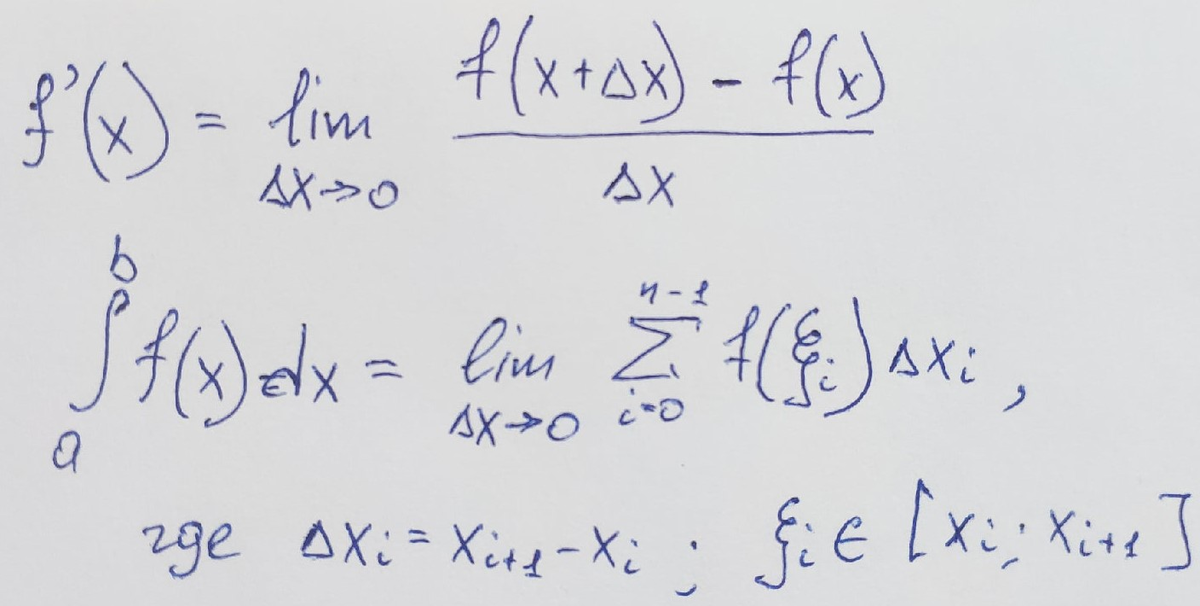 f'(x) = lim_{Δx→0} \frac{f(x+Δx) - f(x)}{Δx}
\int_a^b f(x) dx = lim_{Δx→0} \sum_{i=0}^{n-1} f(ξ_i) Δx_i ,
где Δx_i = x_{i+1} - x_i ; ξ_i ∈ [x_i; x_{i+1}]